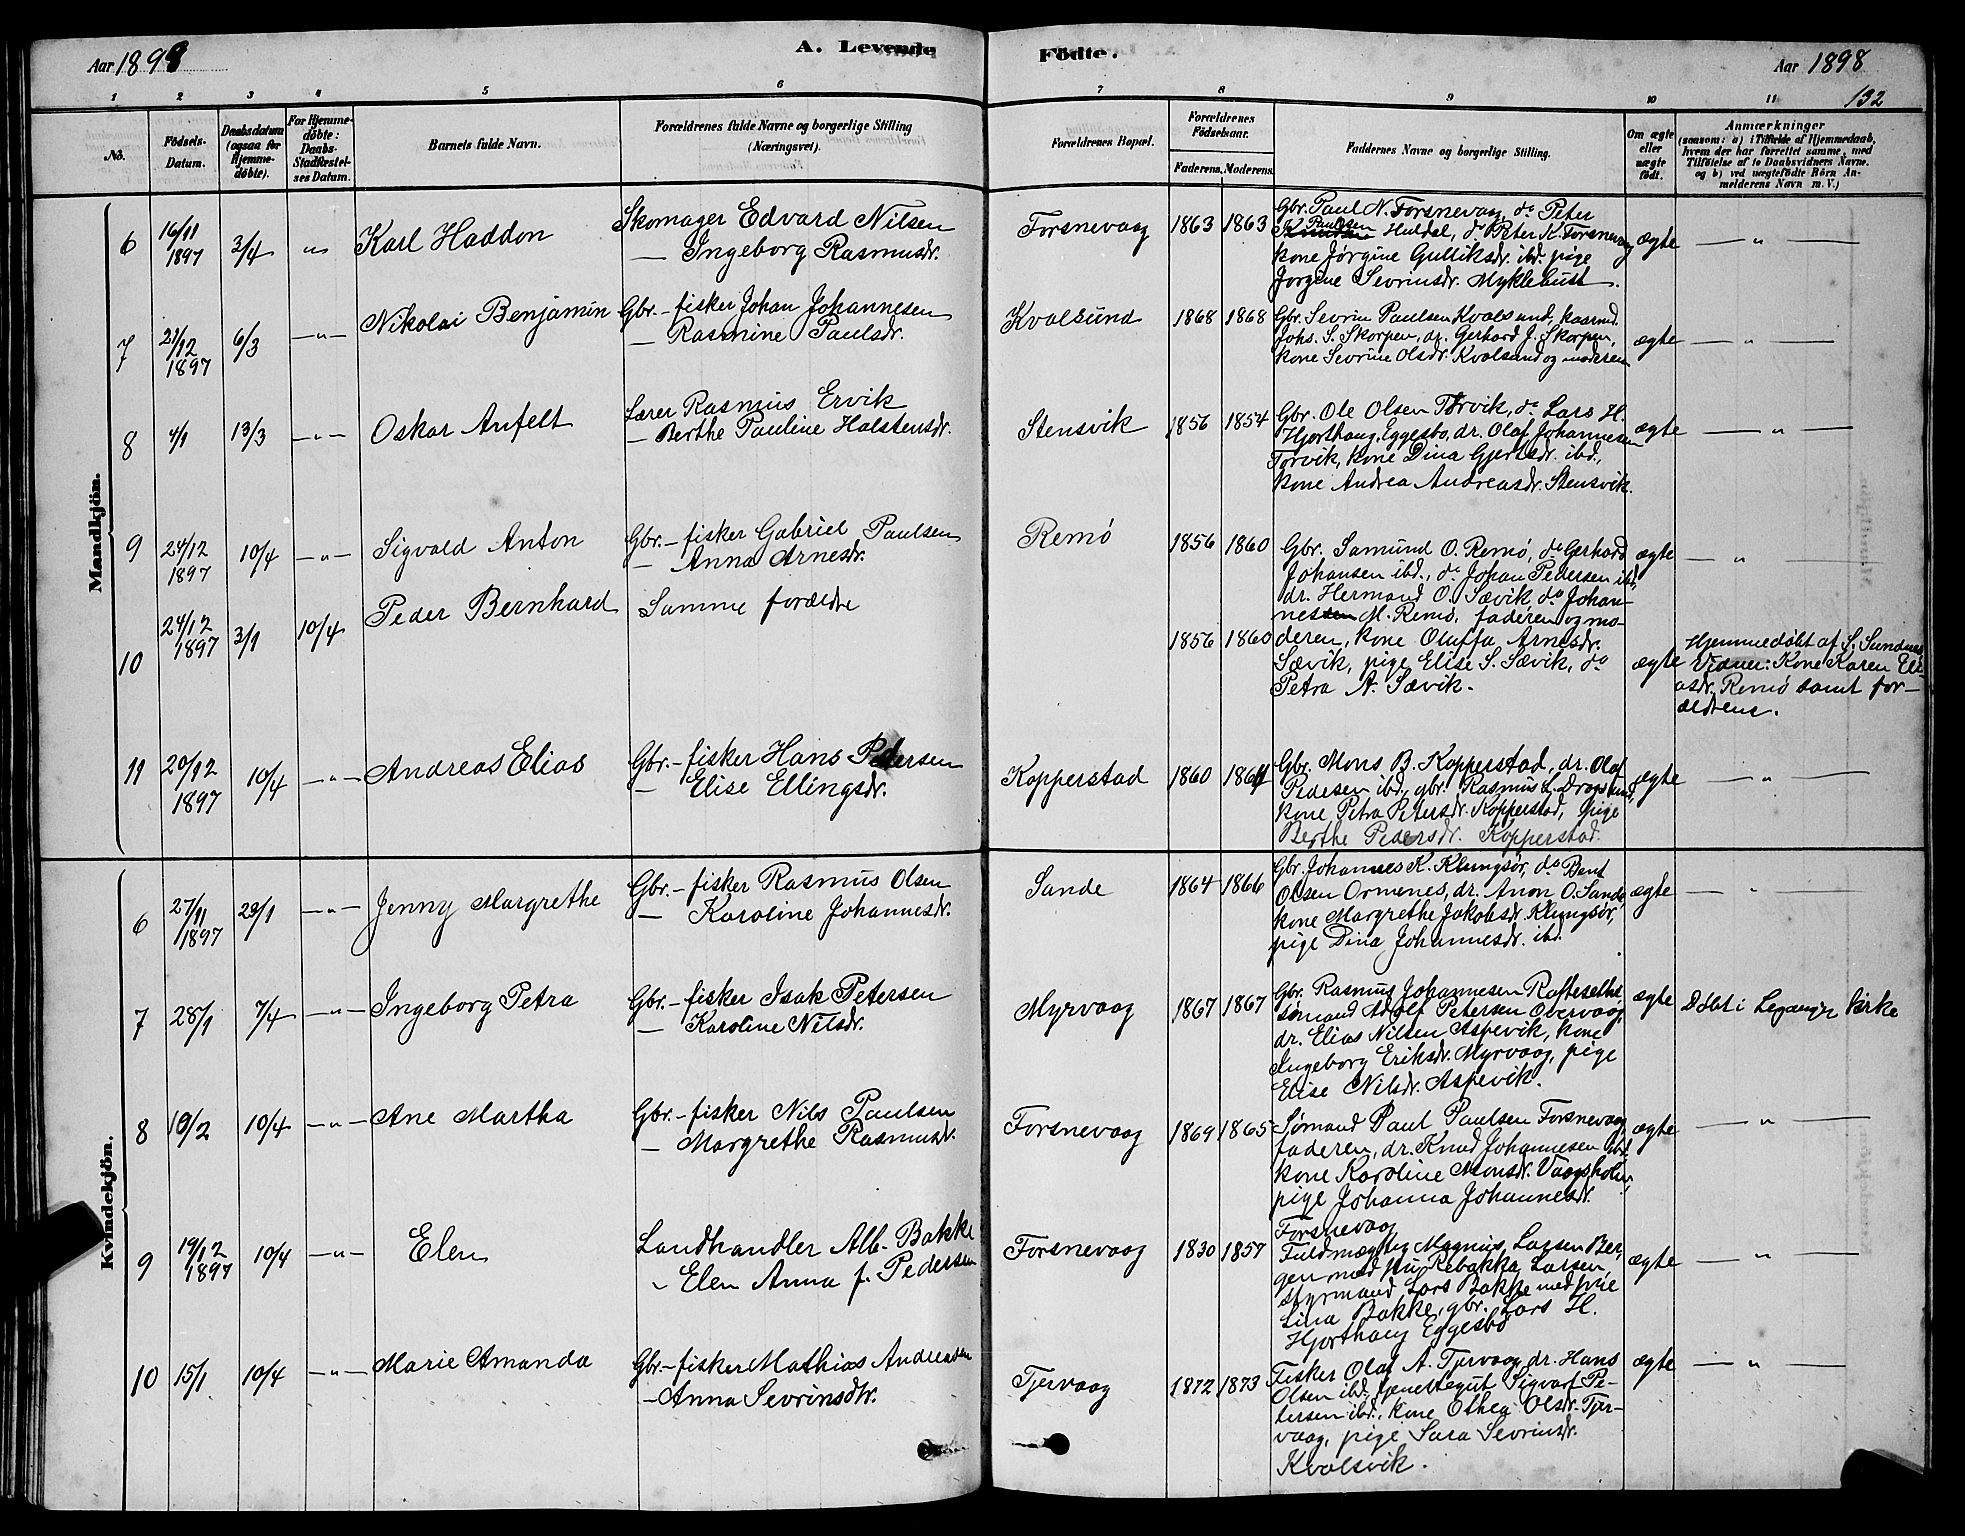 Aar 1898
A. Levende
Födte.
Aar 1898
132
1 2 3 4 5 6 7 8 9 10 11
No.
Födsels-
Datum.
Daabsdatum
(ogsaa for
Hjemme-
döbte).
For Hjemme-
döbte:
Daabs-
Stadfæstel-
ses Datum.
Barnets fulde Navn.
Forældrenes fulde Navne og borgerlige Stilling
(Næringsvei).
Forældrenes Bopæl.
Forældrenes
Födselsaar.
Faderens. Moderens.
Faddernes Navne og borgerlige Stilling.
Om ægte
eller
uægte
født.
Anmærkninger
(saasom: a) i Tilfælde af Hjemmedaab,
hvem der har forrettet samme, med
Tilföielse af to Daabsvidners Navne.
og b) ved uægtefödte Börn An-
melderens Navn m. V.)
Mandkjön.
6
16/11
1897
3/4
"
Karl Haddon
Skomager Edvard Nilsen
— Ingeborg Rasmusdr.
Forsnevaag
1863 1863
Gbr. Paul N. Forsnevaag, do Peter
Paulsen Huldal, do Peter K. Forsnevaag
kone Jørgine Gulliksdr. ibd. pige
Jørgine Sevrinsdr. Myklebust.
ægte
— " —
7
21/12
1897
6/3
— " —
Nikolai Benjamin
Gbr.- fisker Johan Johannesen
— Rasmine Paulsdr.
Kvalsund
1868 1868
Gbr. Sevrin Paulsen Kvalsund,
Johs. S. Skorpen, dr. Gerhard J. Skorpen,
kone Sevrine Olsdr. Kvalsund og moderen
ægte
— " —
8
4/1
13/3
— " —
Oskar Anfelt
Lærer Rasmus Ervik
— Berthe Pauline Halstensdr.
Stensvik
1856 1854
Gbr. Ole Olsen Torvik, do Lars H.
Hjorthaug, Eggesbø, dr. Olaf Johannesen
Torvik, kone Dina Gjertsdr. ibd.,
kone Andrea Andreasdr. Stensvik.
ægte
— " —
9
24/12
1897
10/4
— " —
Sigvald Anton
Gbr.- fisker Gabriel Paulsen
— Anna Arnesdr.
Remø
1856 1860
Gbr. Samund O. Remø, do Gerhard
Johansen ibd., do Johan Pedersen ibd,
dr. Hermand O. Sævik, do Johan-
nes M. Remø, faderen og mo-
ægte
— " —
10
24/12
1897
3/1
10/4
Peder Bernhard
Samme forældre
1856 1860
deren, kone Oluffa Arnesdr.
Sævik, pige Elise S. Sævik, do
Petra A. Sævik.
ægte
Hjemmedøbt af S. Sundnes
Vidner: Kone Karen Eli-
asdr. Remø samt for-
ældrene.
11
20/12
1897
10/4
— " —
Andreas Elias
Gbr.- fisker Hans Pedersen
— Elise Ellingsdr.
Kopperstad
1860 1864
Gbr. Mons B. Kopperstad, dr. Olaf
Pedersen ibd., gbr. Rasmus L. Dragsund,
kone Petra Petersdr. Kopperstad, pige
Berthe Pedersdr. Kopperstad.
ægte
— " —
Kvindekjön.
6
27/11
1897
23/1
— " —
Jenny Margrethe
Gbr.- fisker Rasmus Olsen
— Karoline Johannesdr.
Sande
1864 1866
Gbr. Johannes K. Klungsør, do Bent
Olsen Ormenes, dr. Anon O. Sande
kone Margrethe Jakobsdr. Klungsør,
pige Dina Johannesdr. ibd.
ægte
— " —
7
28/1
7/4
— " —
Ingeborg Petra
Gbr.- fisker Isak Petersen
— Karoline Nilsdr.
Myrvaag
1867 1867
Gbr. Rasmus Johannesen Rafteseth
sømand Adolf Petersen Øvervaag,
dr. Elias Nilsen Aspevik, kone
Ingeborg Eriksdr. Myrvaag, pige
Elise Nilsdr. Aspevik.
ægte
Døbt i Leganger kirke
8
19/2
10/4
— " —
Ane Martha
Gbr.- fisker Nils Paulsen
— Margrethe Rasmusdr.
Forsnevaag
1869 1865
Sømand Paul Paulsen Forsnevaag
faderen, dr. Knud Johannesen ibd.
kone Karoline Monsdr. Vaagsholm,
pige Johanna Johannesdr.
Forsnevaag
ægte
— " —
9
19/12
1897
10/4
— " —
Elen
Landhandler Alb. Bakke
" Elen Anna f. Pedersen
Forsnevaag
1830 1857
Fuldmægtig Magnus Larsen Ber-
gen med fru Rebakka Larsen,
styrmand Lars Bakke med frue
Lina Bakke, gbr. Lars H.
Hjorthaug Eggesbø
ægte
— " —
10
15/1
10/4
— " —
Marie Amanda
Gbr.- fisker Mathias Andreasen
— Anna Sevrinsdtr.
Tjervaag
1872 1873
Fisker Olaf A. Tjervaag, dr. Hans
Olsen ibd., tjenestegut Sigvart Pe-
tersen ibd., kone Othea Olsdr. Tjer-
vaag, pige Sara Sevrinsdr.
Kvalsvik.
ægte
— " —